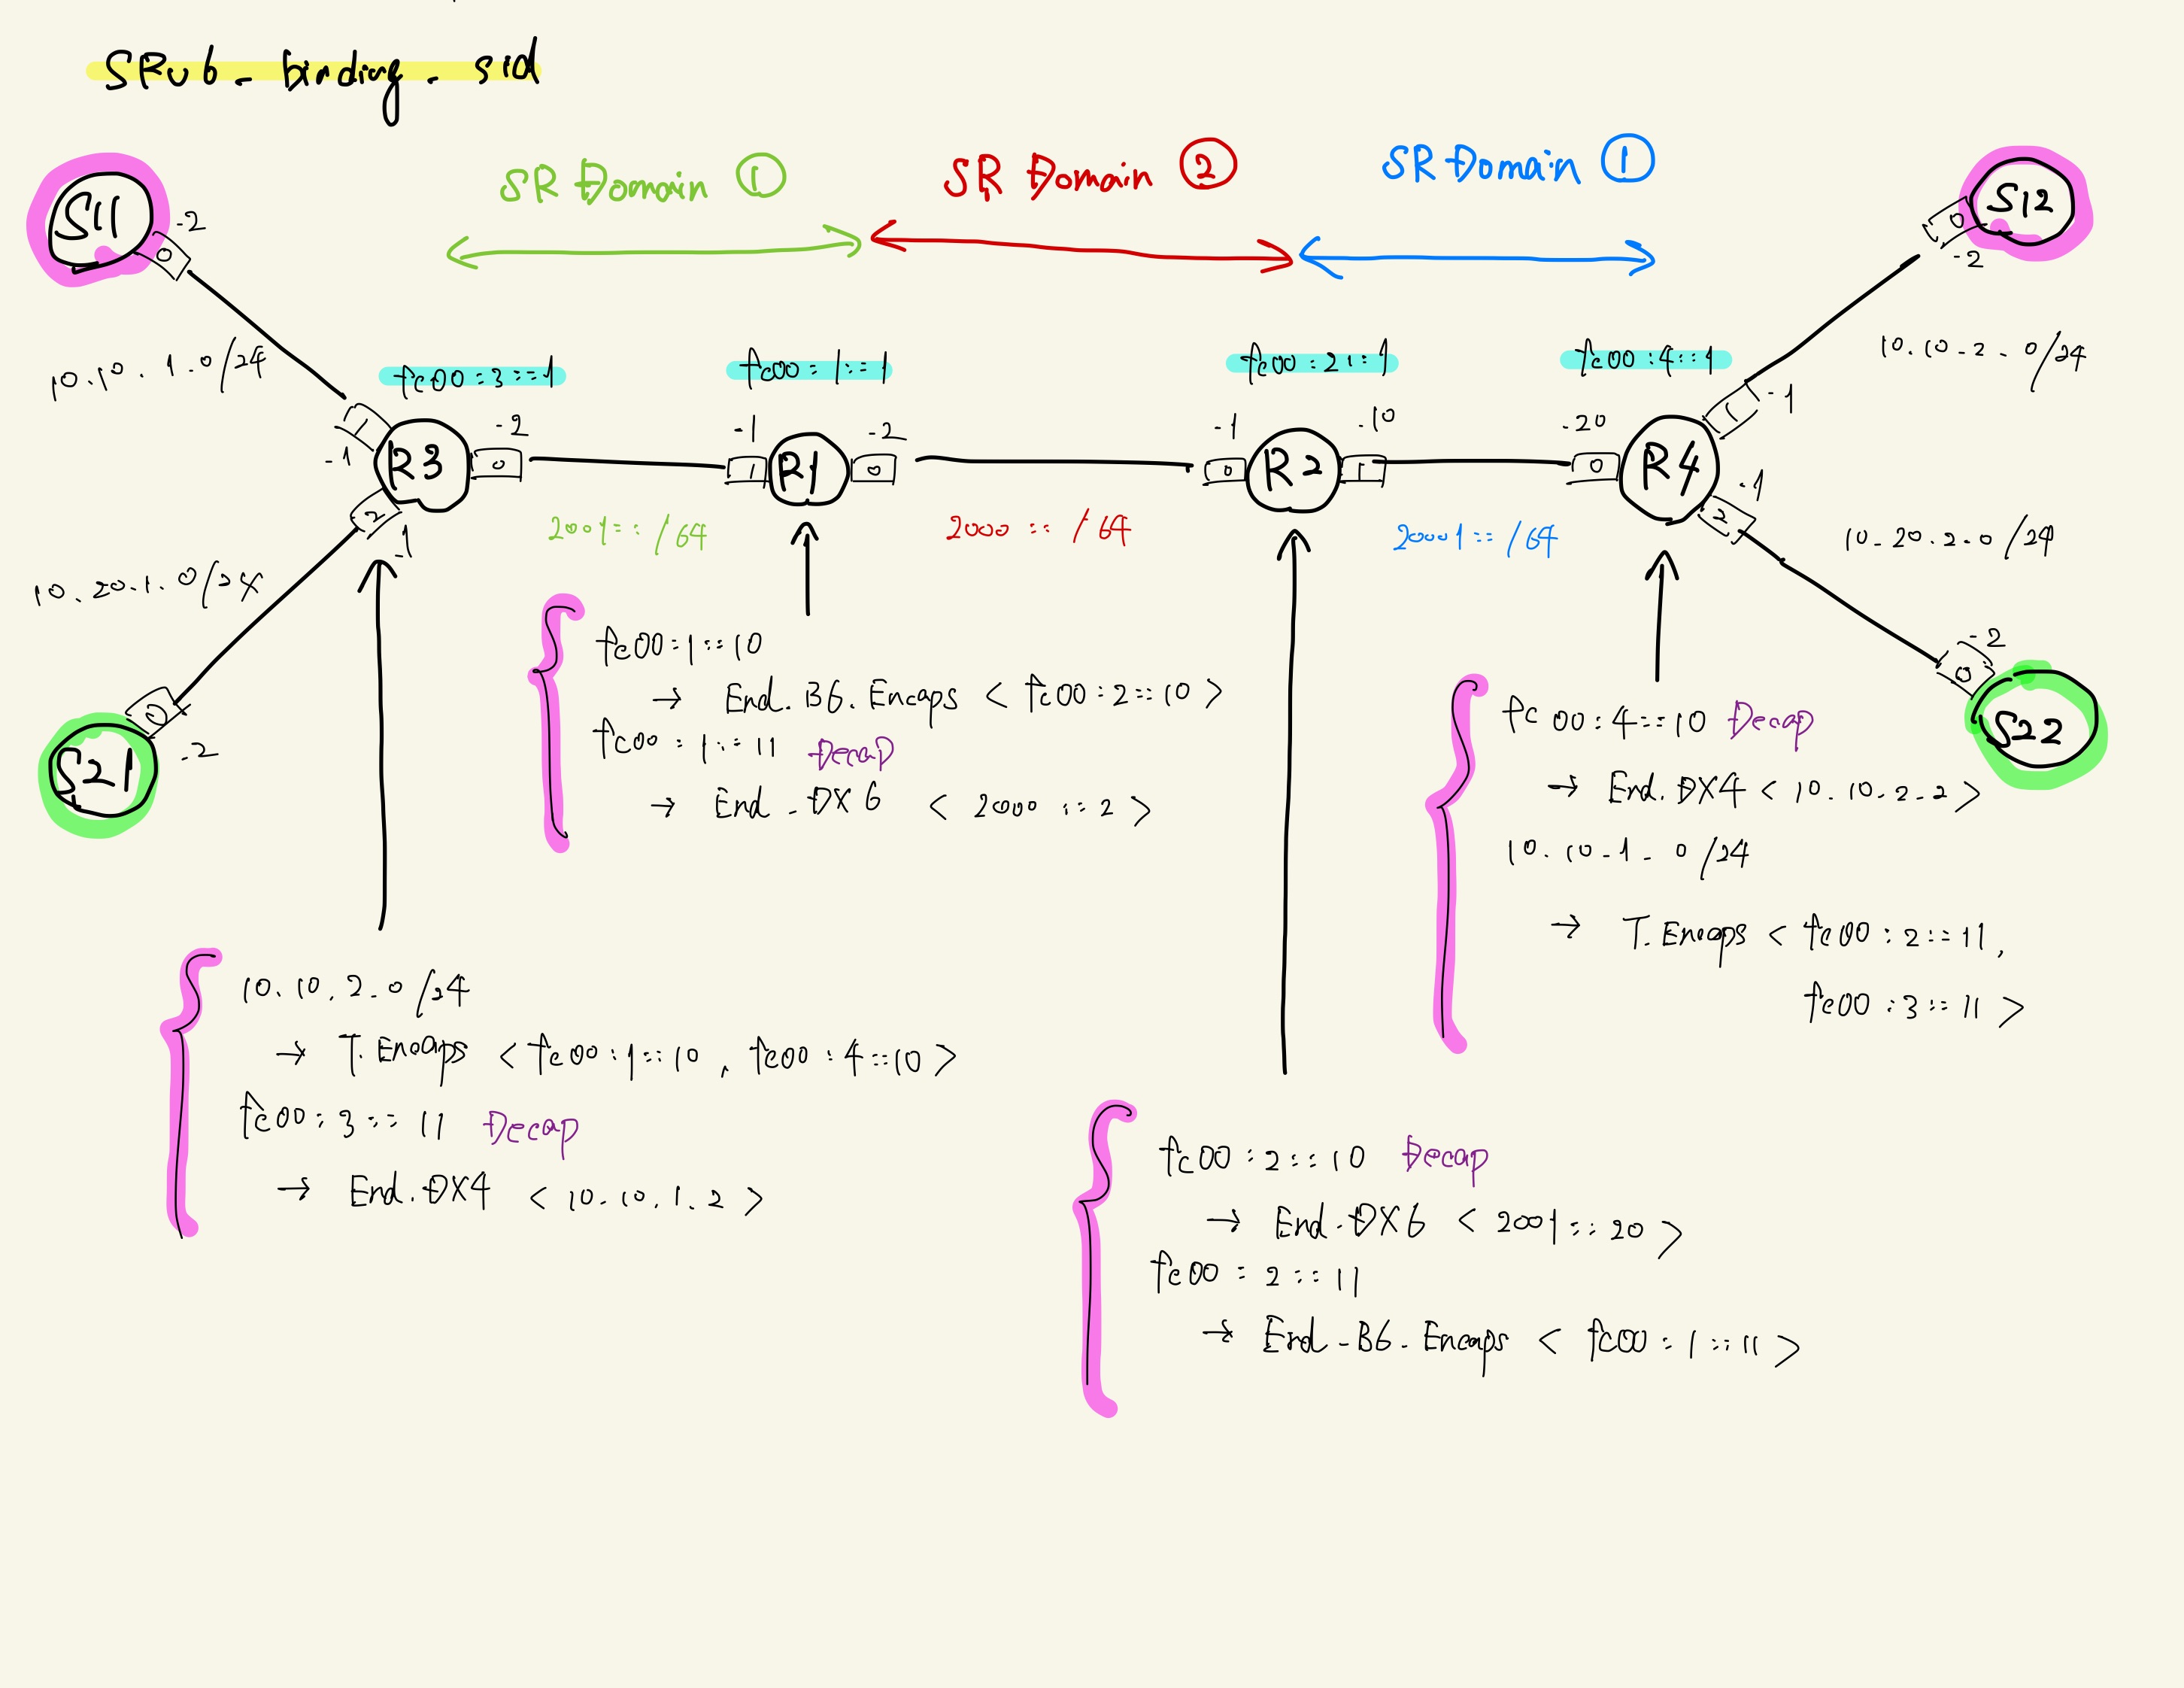 SRv6_binding_sid
SR Domain ①
SR Domain ②
SR Domain ①
S11
.2
0
S12
0
.2
10.10.1.0/24
10.10.2.0/24
fc00:3::1
fc00:1::1
fc00:2::1
fc00:4::1
1
.1
R3
.2
0
.1
1
R1
.2
0
.1
0
R2
.10
1
.20
0
R4
1
.1
2
.1
2
.1
2001::/64
2000::/64
20001::/64
10.20.1.0/24
10.20.2.0/24
0
.2
S21
.2
0
S22
fc00:1::10
→ End.B6.Encaps < fc00:2::10 >
fc00:1::11 Decap
→ End.DX6 < 2000::2 >
fc00:4::10 Decap
→ End.DX4 < 10.10.2.2 >
10.10.1.0/24
→ T.Encaps < fc00:2::11,
fc00:3::11 >
10.10.2.0/24
→ T.Encaps < fc00:1::10, fc00:4::10 >
fc00:3::11 Decap
→ End.DX4 < 10.10.1.2 >
fc00:2::10 Decap
→ End.DX6 < 2001::20 >
fc00:2::11
→ End.B6.Encaps < fc00:1::11 >